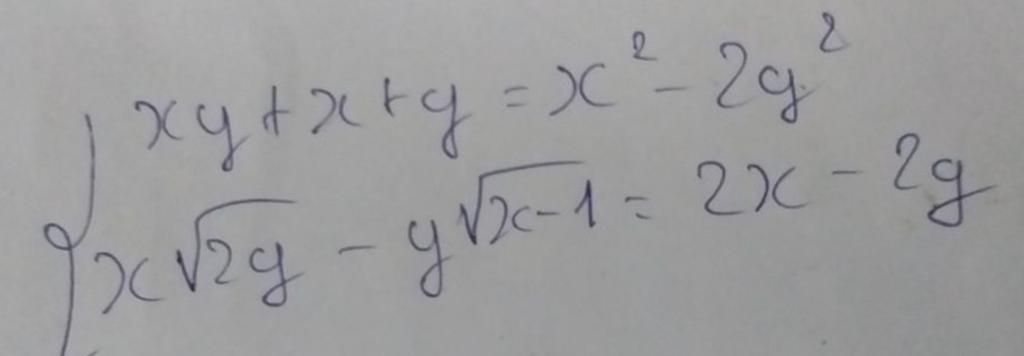 xy + x + y = x² - 2y²
x√2y - y√x-1 = 2x - 2y